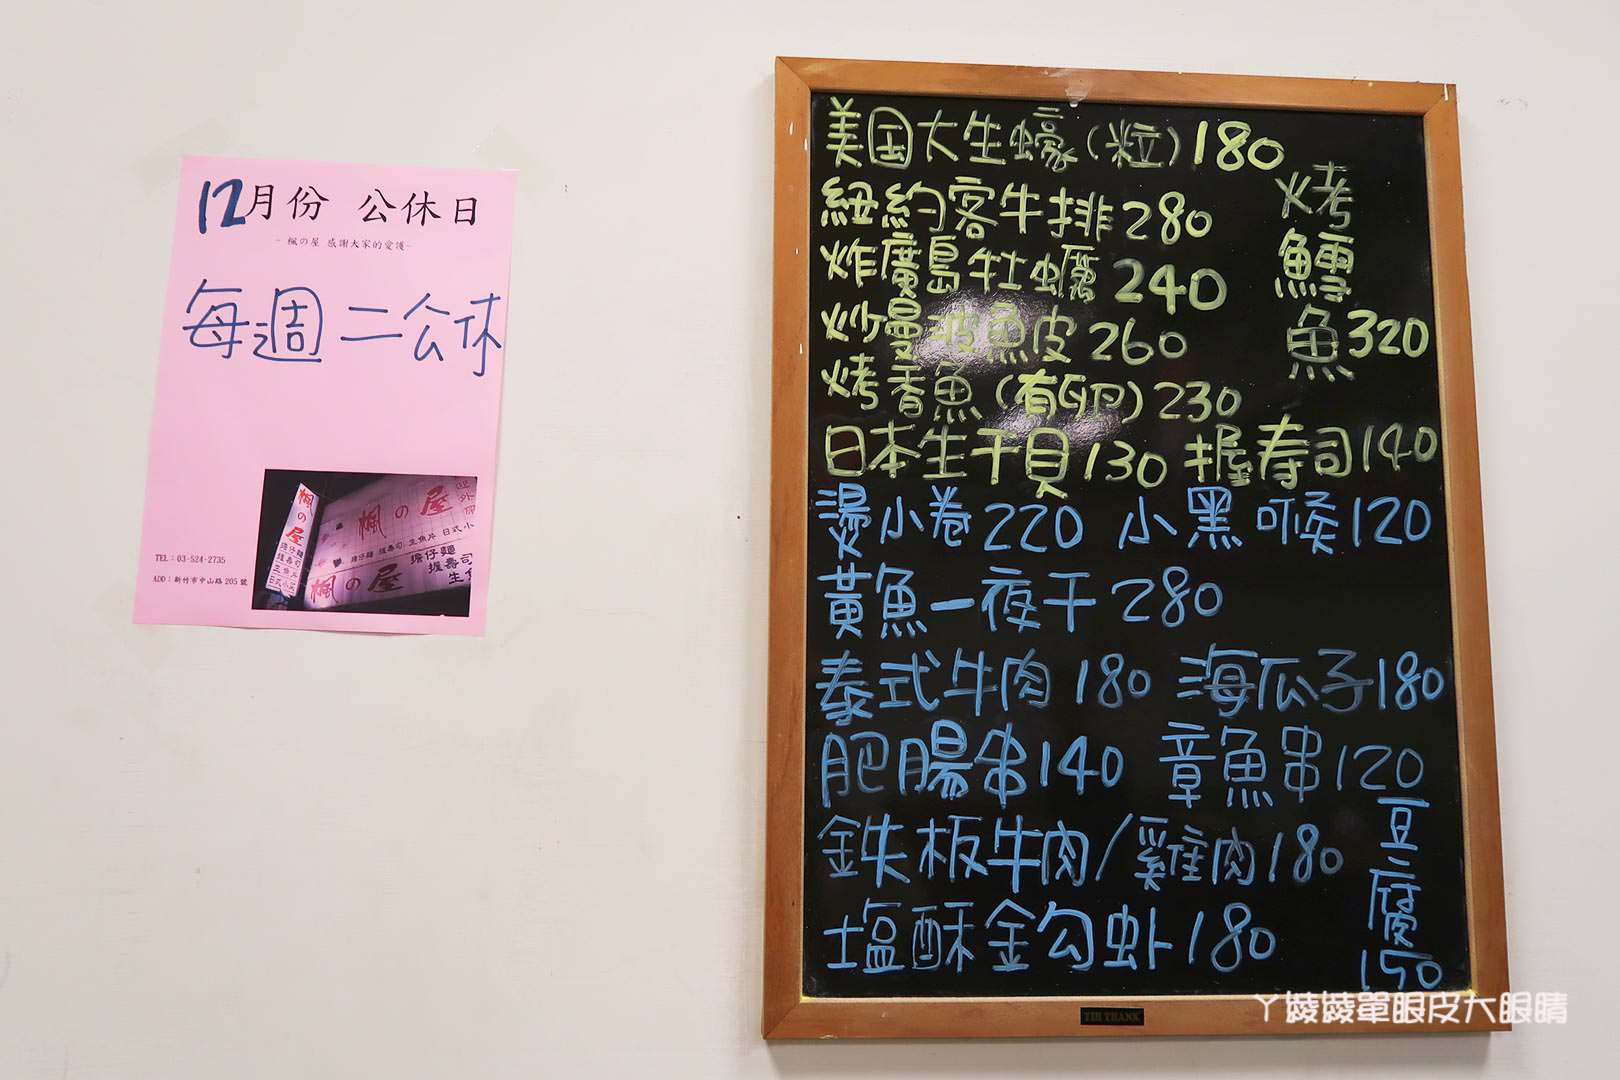 12月份 公休日
- 楓の屋 感謝大家的愛護-
每週二公休
楓の屋
楓の屋
擔仔麵 握壽司 生魚片 日式小
擔仔麵
握壽司
楓の屋
TEL：03-524-2735
ADD：新竹市中山路205號
美国大生蠔(粒)180
紐約客牛排280
炸廣島牡蠣240
炒曼波魚皮260
烤香魚(有卵)230
烤鱈魚320
日本生干貝130 握寿司140
燙小卷220 小黑喉120
黃魚一夜干280
泰式牛肉180 海瓜子180
肥腸串140 章魚串120
鉄板牛肉/雞肉180
塩酥金勾虾180
豆腐150
YIH THANK
ㄚ綾綾單眼皮大眼睛